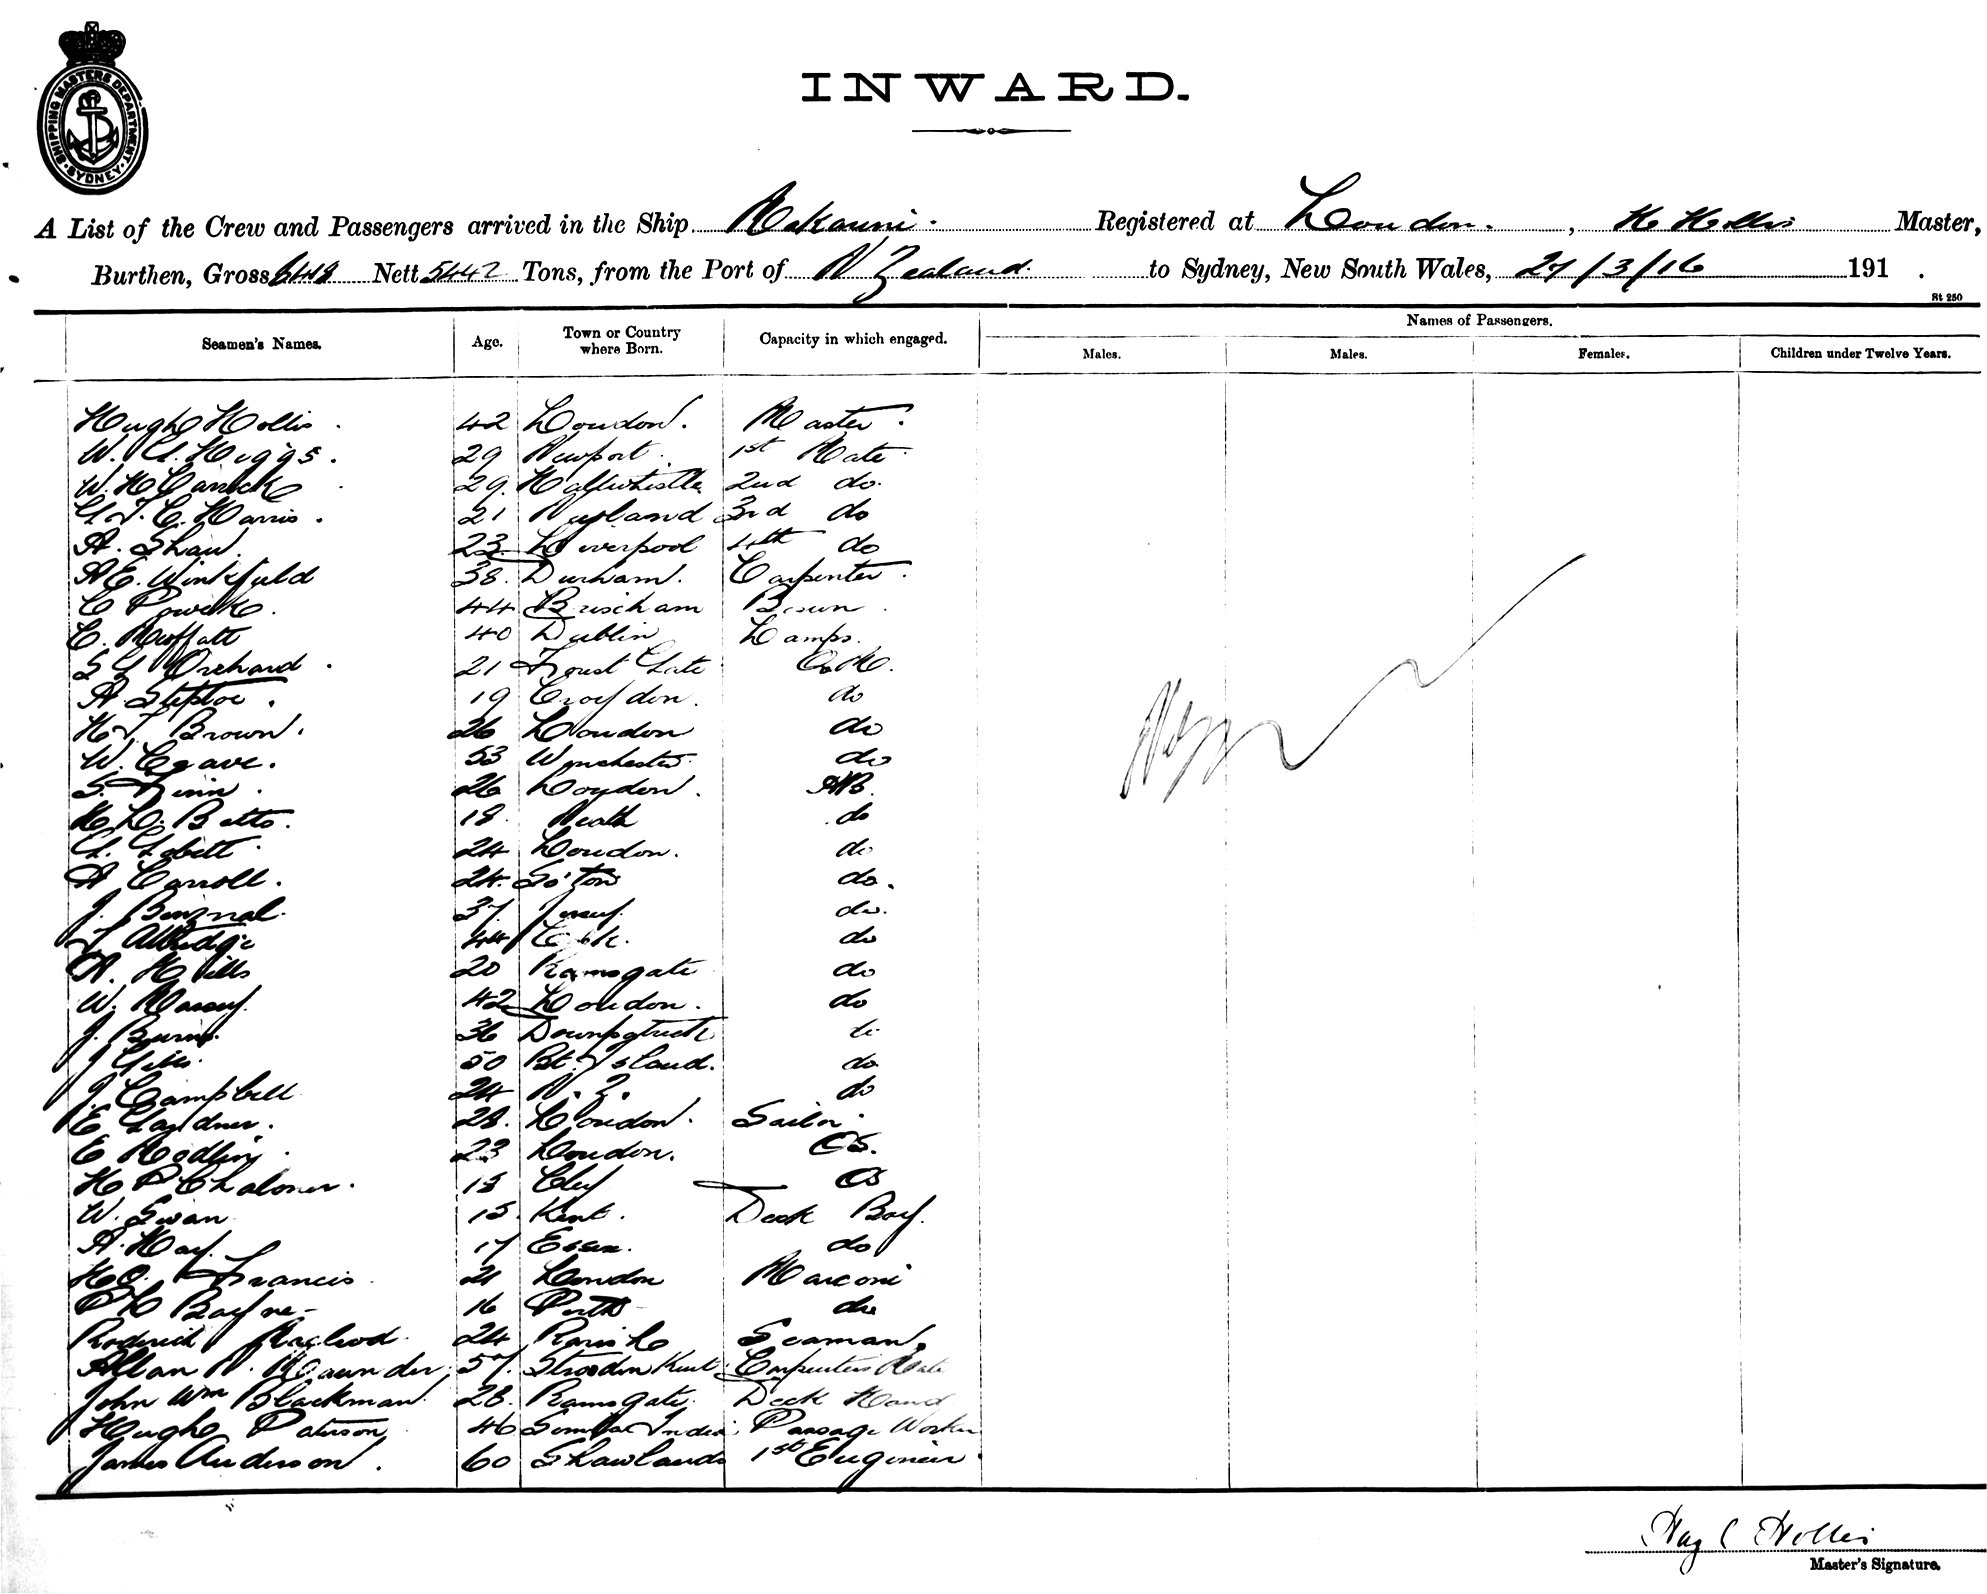 SHIPPING MASTERS DEPARTMENT. SYDNEY
INWARD.
A List of the Crew and Passengers arrived in the Ship Makarini. Registered at London. , H Hollis Master,
Burthen, Gross Nett 5442 Tons, from the Port of N Zealand. to Sydney, New South Wales, 27/3/16 191 .
St 250
Seamen's Names. Age. Town or Country where Born. Capacity in which engaged. Names of Passengers.
Males. Males. Females. Children under Twelve Years.
Hugh Hollis 42 London. Master.
W. G. Higgs. 29 Newport. 1st Mate
W. H Carrick 29. Haltwhistle 2nd do.
G T. C. Harris. 21 Nayland 3rd do
A. Shaw. 23. Liverpool 4th do
A E. Winkfield 38. Durham. Carpenter.
C 44 Brixham Bosun
C. Moffatt 40 Dublin Lamps.
S G Orchard. 21 Forest Gate Q.M.
A Steptoe. 19 Croydon. do
H J Brown. 26 London do
W. Cave. 53 Winchester do
S. Finn. 26 London. AB.
H. L. Betts. 18. Neath do
G. 24 London. do
A Carroll. 24. So'ton do.
J. 37. Jersey. do.
44 Cork. do
A. Hills 20 Ramsgate do
W. Massey. 42 London. do
J. Burns. 36 Downpatrick do
J Gibbs. 50 Pt. Island. do
J. Campbell 24 N. Z. do
E Gardner. 28. London. Sailor
E Hedling. 23 London. OS.
H P Chaloner. 18 Cley OS
W. Swan 15. Kent. Deck Boy.
A. Hay. 17 Essex. do
H O. Francis. 21 London Marconi
P H Bayne 16 Perth do
Roderick Macleod. 24 Seaman.
Allan N. Maunder. 57. Kent. Carpenters Mate
John Wm Blackman. 28. Ramsgate. Deck Hand
Hugh Paterson 46 India. Passage Worker
James Anderson. 60 Shawlands 1st Engineer.
Hugh Hollis
Master's Signature.